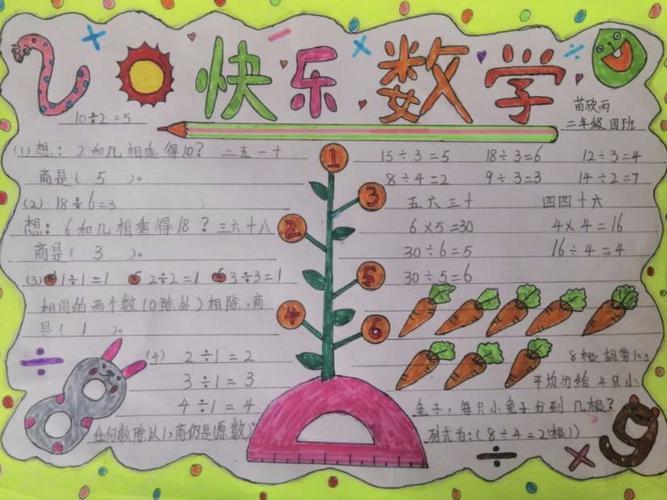 快乐数学
苗欣雨
二年级 四班
10÷2=5
(1)想：2和几相乘得10？ 二五一十
商是（ 5 ）。
(2) 18÷6=3
想：6和几相乘得18？三六十八
商是（ 3 ）。
(3) 1÷1=1 2÷2=1 3÷3=1
相同的两个数(0除外)相除，商
是（ 1 ）。
(4) 2÷1=2
3÷1=3
4÷1=4
任何数除以1，商仍是原数
1
3
2
5
4
6
15÷3=5 18÷3=6 12÷3=4
8÷4=2 9÷3=3 14÷2=7
五六三十 四四十六
6×5=30 4×4=16
30÷6=5 16÷4=4
30÷5=6
8根胡萝卜，
平均分给4只小
兔子，每只小兔子分到几根？
列式为：(8÷4=2(根))
÷
×
8
9